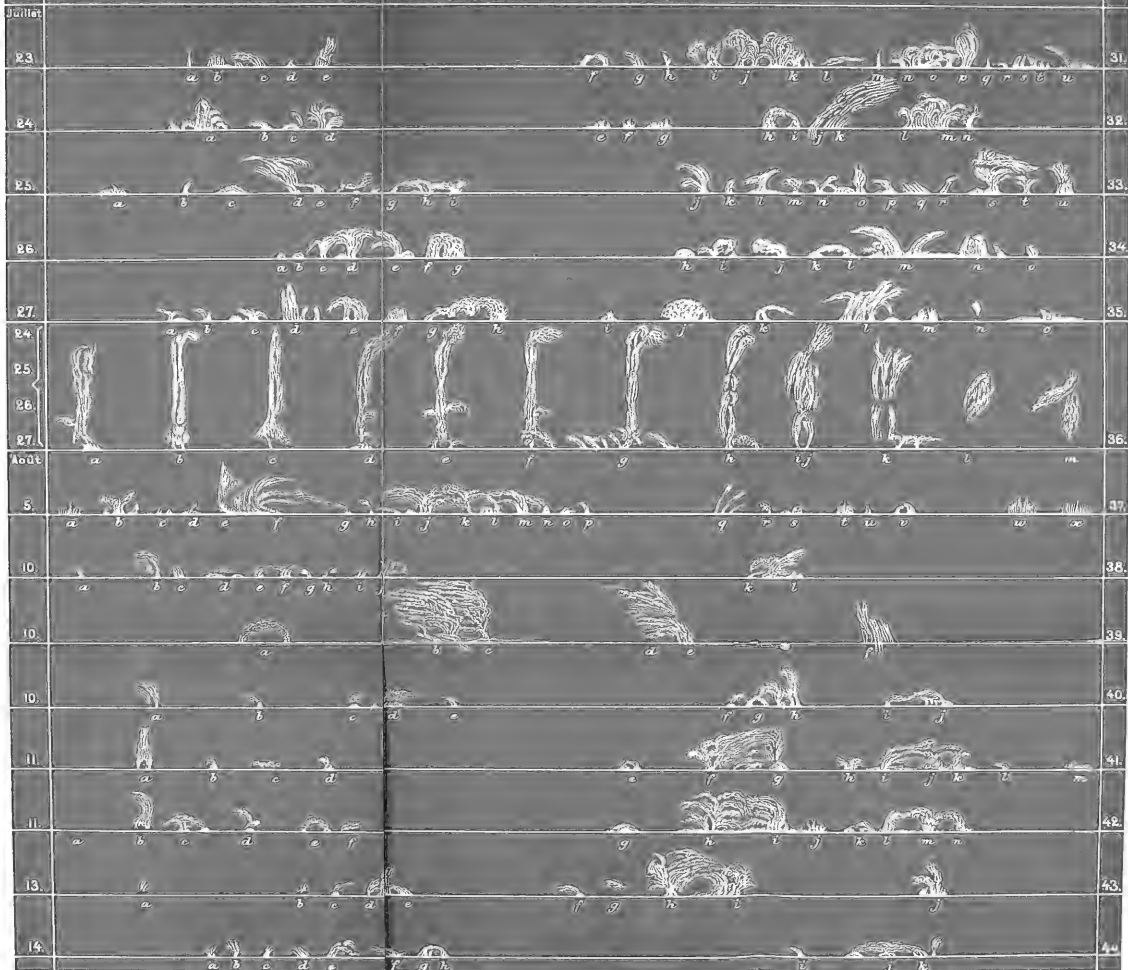 Juillet
23. 31.
a b c d e f g h i j k l m n o p q r s t u
24. 32.
a b c d e f g h i j k l m n
25. 33.
a b c d e f g h i j k l m n o p q r s t u
26. 34.
a b c d e f g h i j k l m n o
27. 35.
a b c d e f g h i j k l m n o
24.
25.
26.
27. 36.
a b c d e f g h ij k l m
Août
5. 37.
a b c d e f g h i j k l m n o p q r s t u v w x
10. 38.
a b c d e f g h i j k l
10. 39.
a b c d e f
10. 40.
a b c d e f g h i j
11. 41.
a b c d e f g h i j k l m
11. 42.
a b c d e f g h i j k l m n
13. 43.
a b c d e f g h i j
14. 44
a b c d e f g h i j k